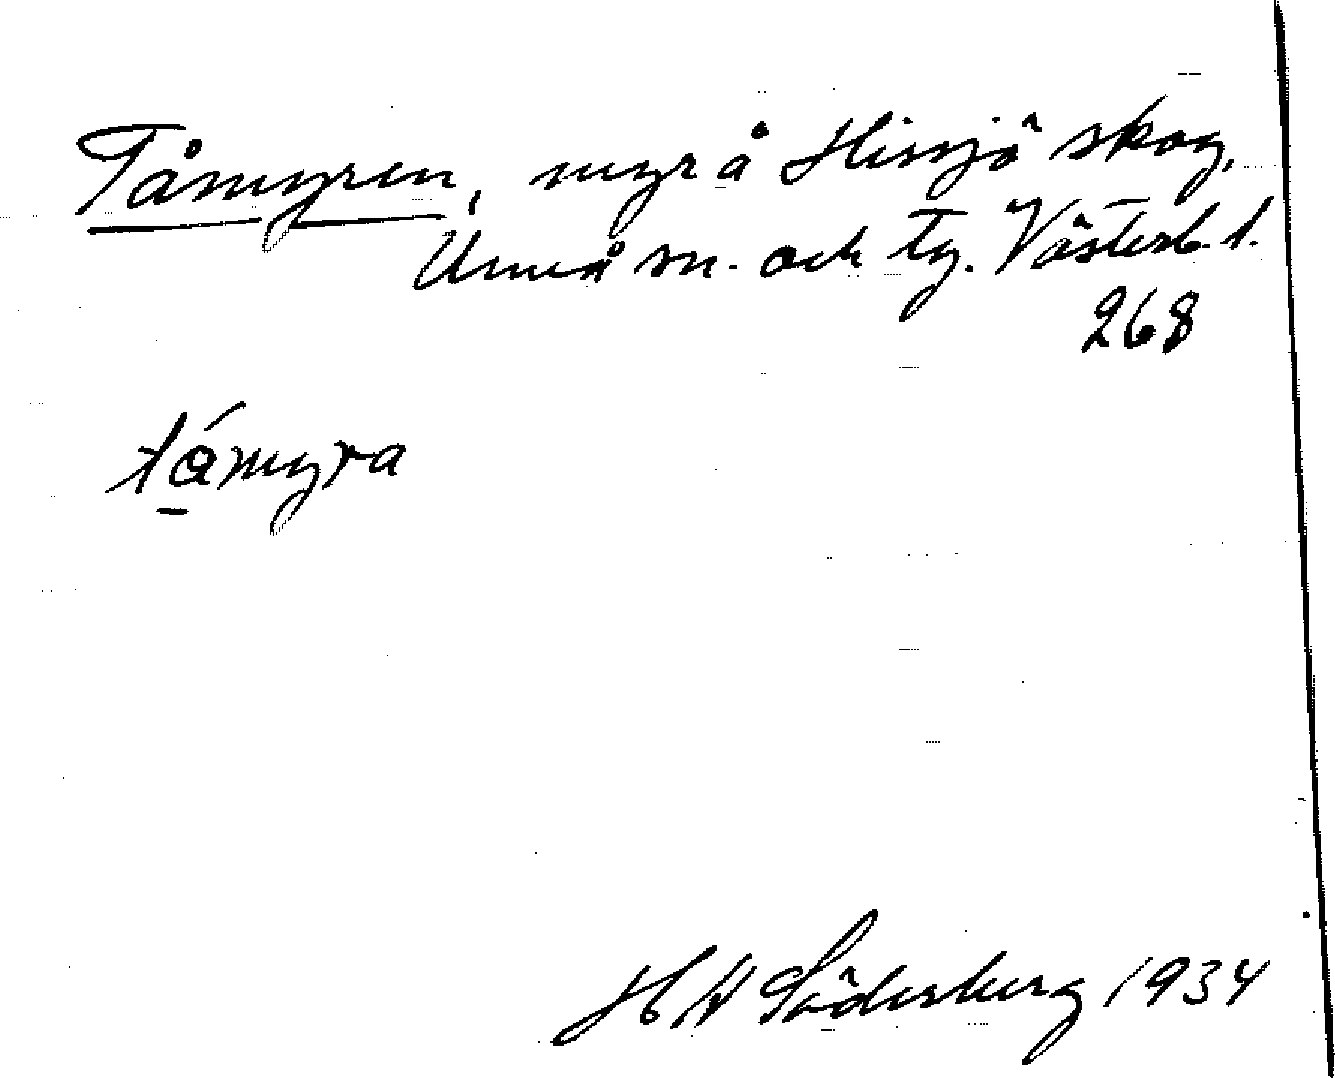 Tåmyren, myr å Hissjö skog,
Umeå sn. och tg. Västerb. l.
268
tåmyra
H W Söderberg 1934